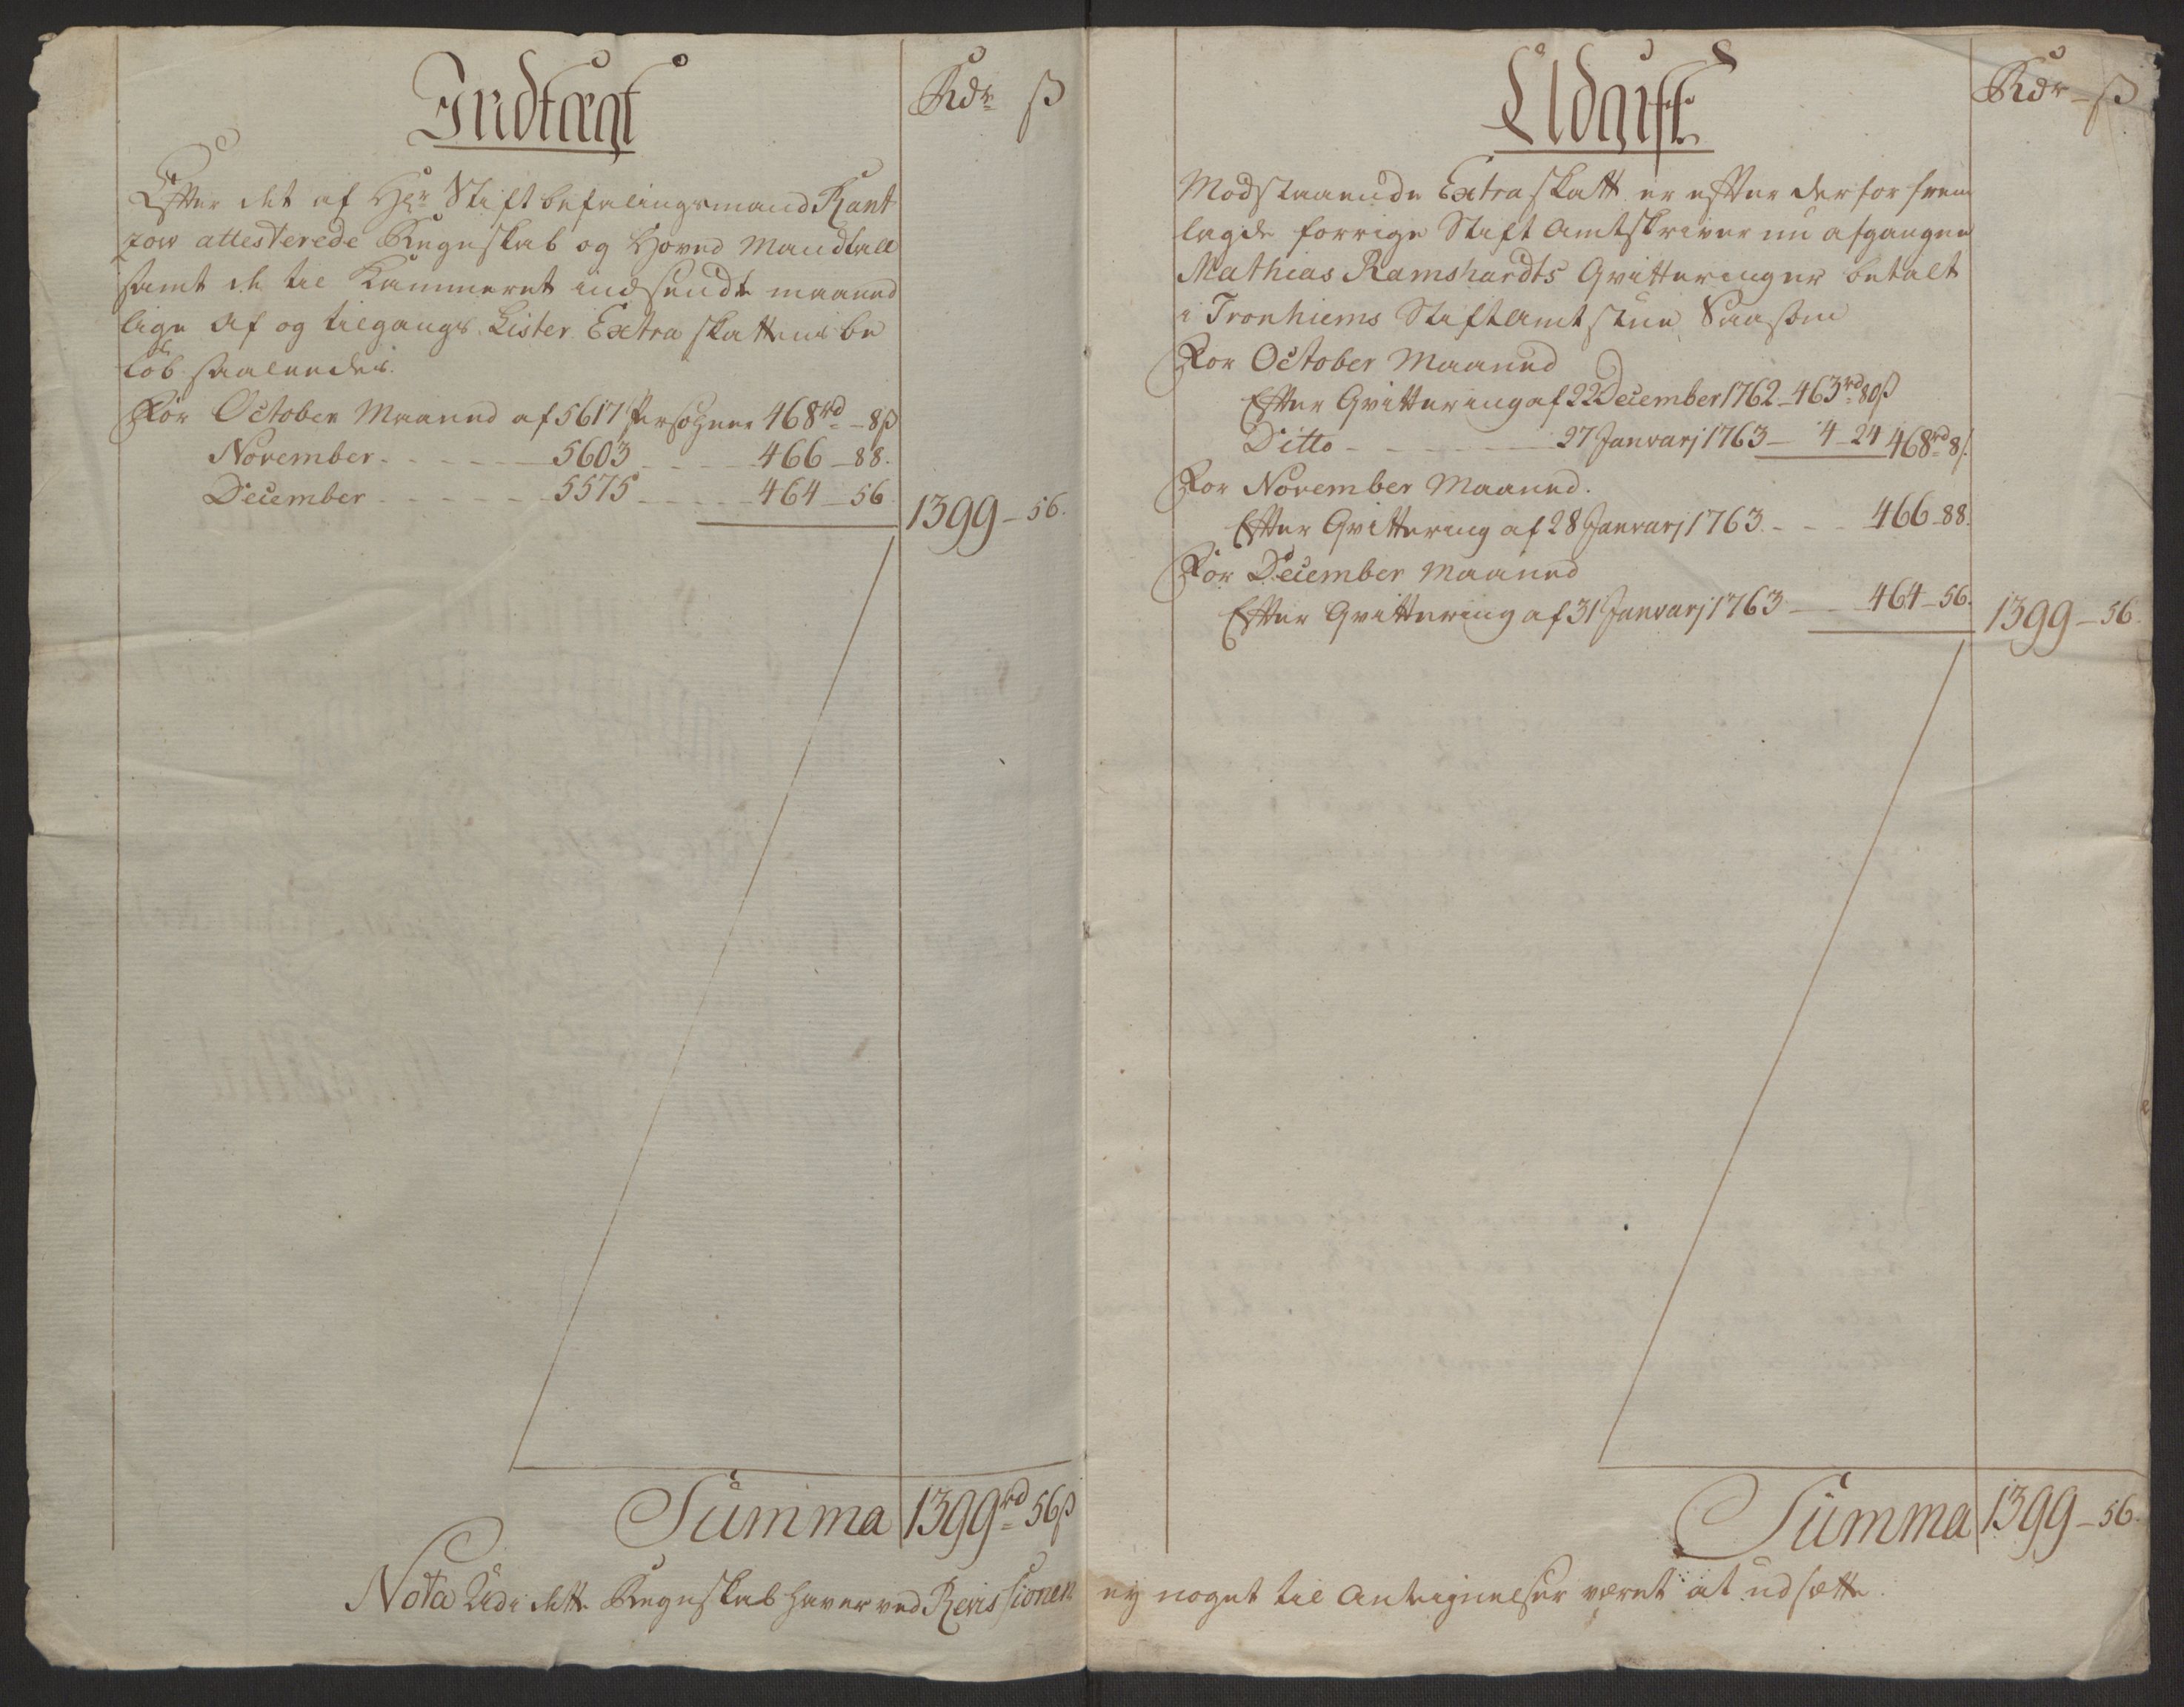 Indtægt
Rdr ß
Efter det af Hr Stiftbefalingsmand Rant
zow attesterede Regnskab og Hoved Mandtall
samt de til Kammeret indsendte maaned
lige af og tilgangs Lister Extra skattens be
løb saaledes.
For October Maaned af 5617 Persohner 468rd - 8ß
November - - - 5603 - - - 466 - 88.
December - - - 5575 - - - 464 - 56
1399 - 56.
Summa 1399rd 56ß
Udgift
Rdr - ß
Modstaaende Extraskatt er efter derfor frem
lagde forrige Stift Amtskriver nu afgangne
Mathias Ramshardts Qvitteringer betalt
i Tronhiems Stiftamtstue, Saasom
For October Maaned
Efter Qvittering af 22 December 1762 - 463rd 80ß
Ditto - - - 27 Janvarj 1763 - 4 - 24 468rd 8ß
For November Maaned.
Efter Qvittering af 28 Janvarj 1763 - - - 466 - 88.
For December Maaned
Efter Qvittering af 31 Janvarj 1763 - - 464 - 56.
1399 - 56.
Summa 1399 - 56.
Nota Udi dette Regnskab haver ved Revissionen ey noget til Antegnelser været at udsætte.